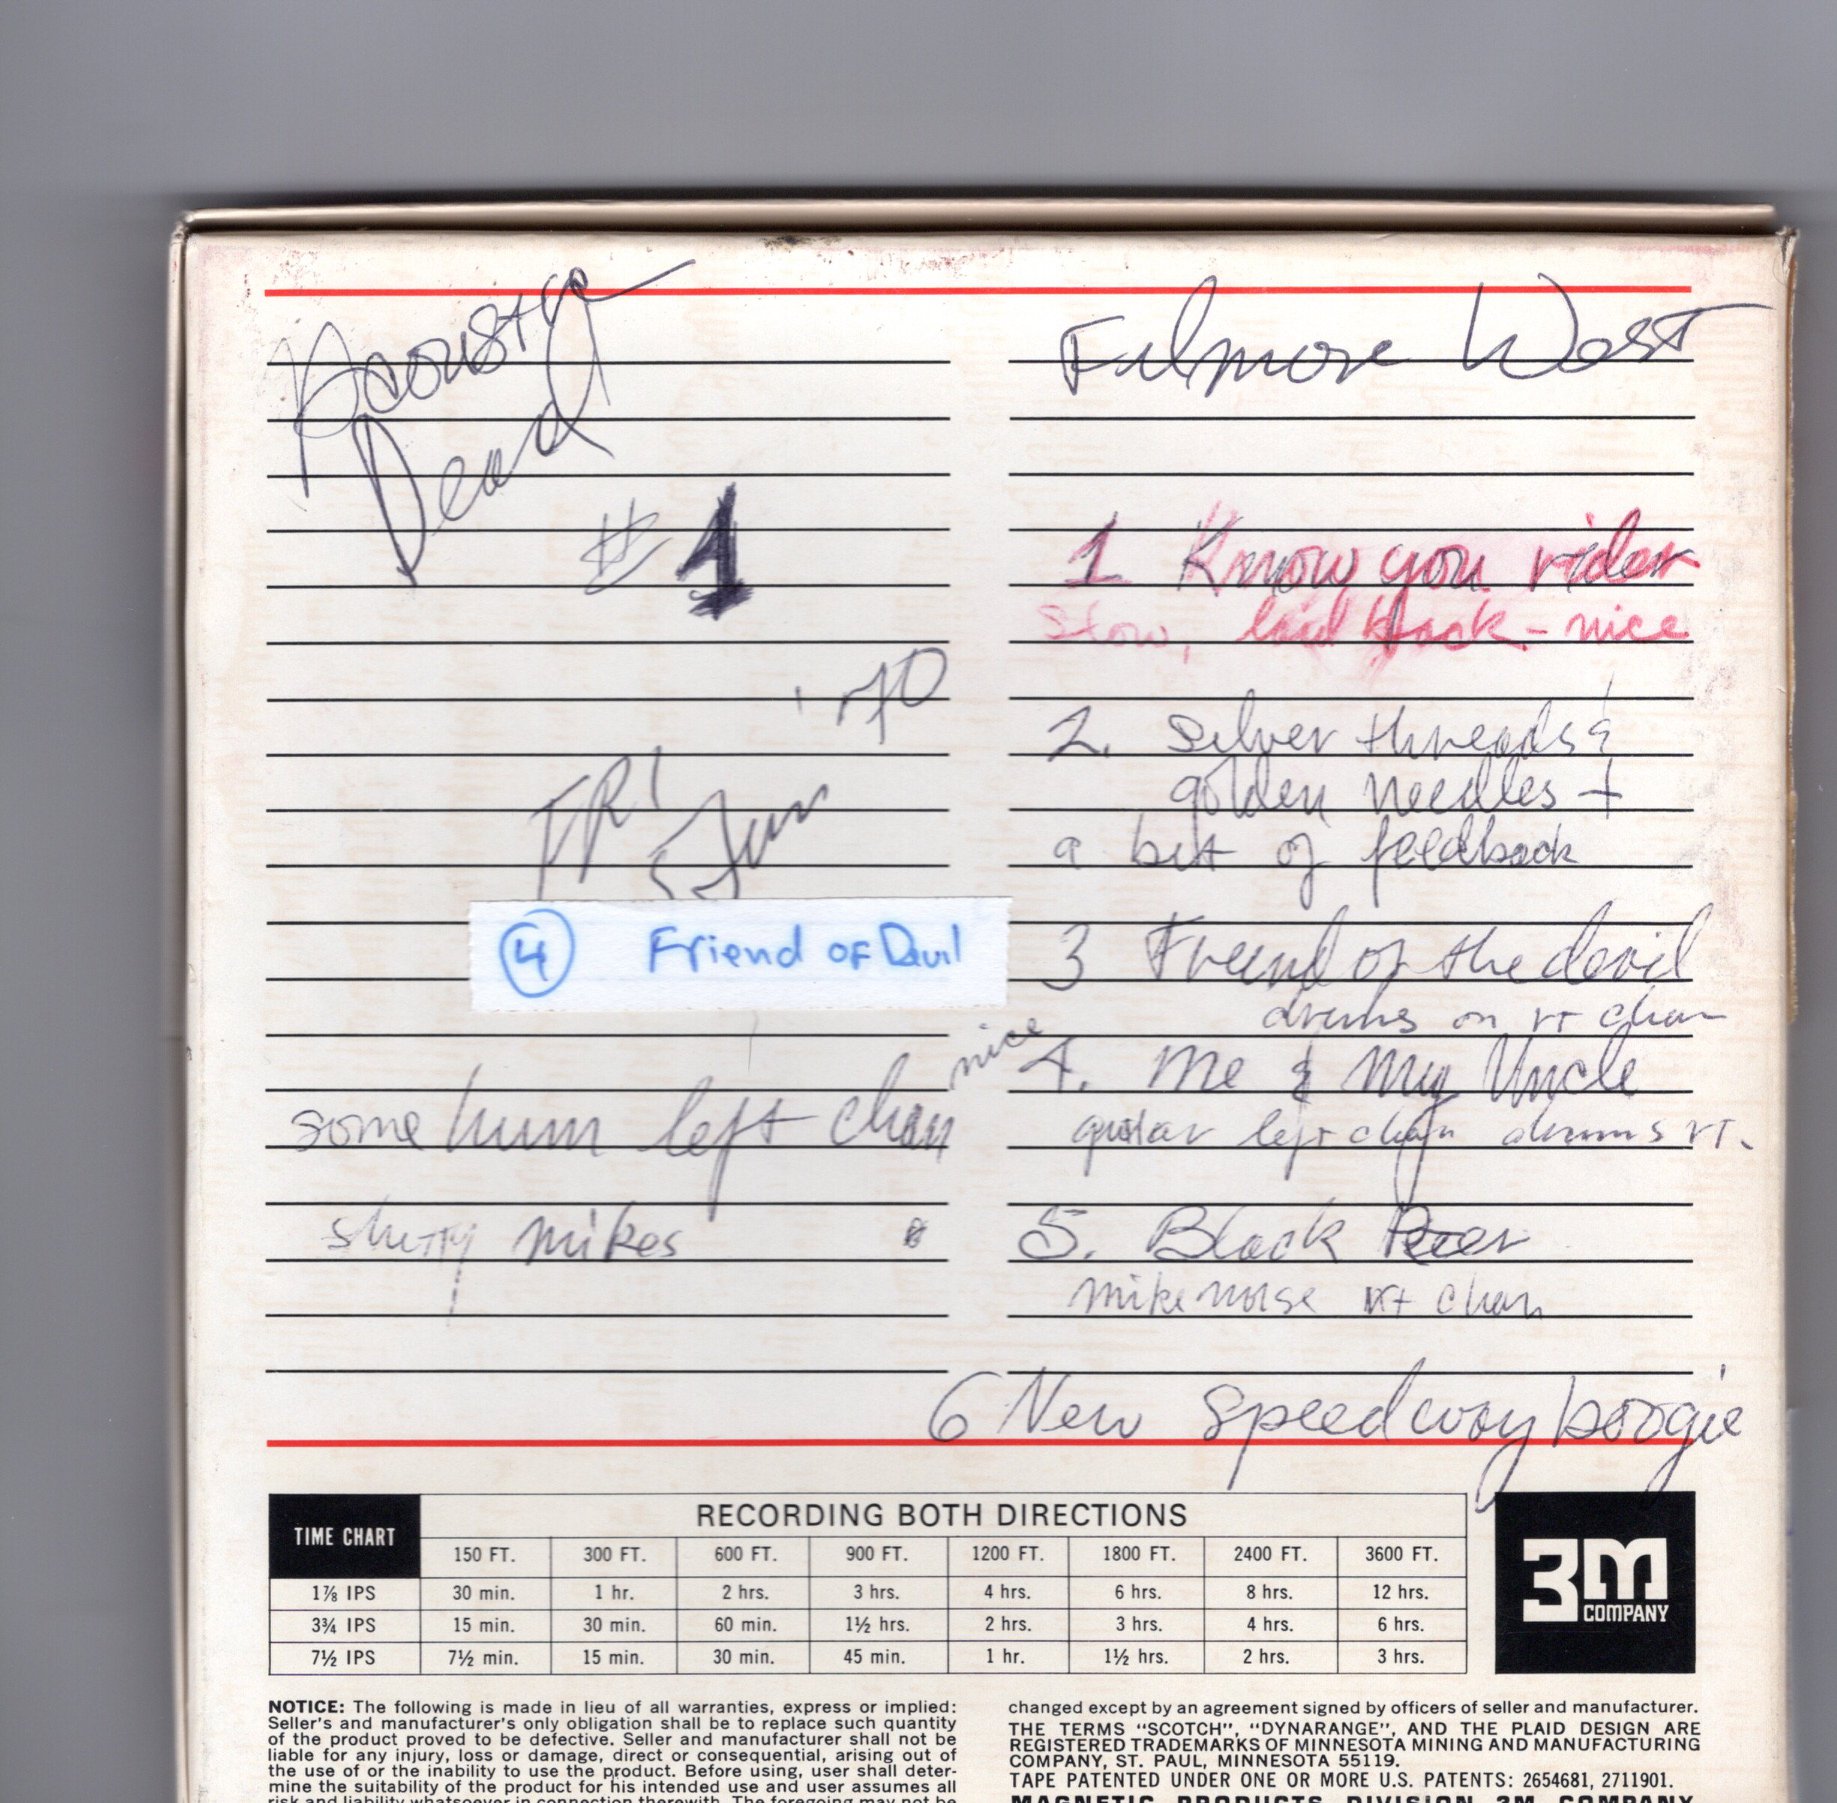 Acoustic
Dead
# 1
'70
FRI
5 Jun
④ Friend of Devil
some hum left chan
shitty mikes
Filmore West
1 Know you rider
Slow, laid back - nice
2. silver threads &
golden needles +
a bit of feedback
3 Friend of the devil
drums on rt chan
nice 4. Me & My Uncle
guitar left chan drums rt.
5. Black Peter
mike noise rt chan
6 New Speedway boogie
TIME CHART
RECORDING BOTH DIRECTIONS
150 FT. 300 FT. 600 FT. 900 FT. 1200 FT. 1800 FT. 2400 FT. 3600 FT.
1⅞ IPS 30 min. 1 hr. 2 hrs. 3 hrs. 4 hrs. 6 hrs. 8 hrs. 12 hrs.
3¾ IPS 15 min. 30 min. 60 min. 1½ hrs. 2 hrs. 3 hrs. 4 hrs. 6 hrs.
7½ IPS 7½ min. 15 min. 30 min. 45 min. 1 hr. 1½ hrs. 2 hrs. 3 hrs.
3M
COMPANY
NOTICE: The following is made in lieu of all warranties, express or implied:
Seller's and manufacturer's only obligation shall be to replace such quantity
of the product proved to be defective. Seller and manufacturer shall not be
liable for any injury, loss or damage, direct or consequential, arising out of
the use of or the inability to use the product. Before using, user shall deter-
mine the suitability of the product for his intended use and user assumes all
risk and liability whatsoever in connection therewith. The foregoing may not be
changed except by an agreement signed by officers of seller and manufacturer.
THE TERMS "SCOTCH", "DYNARANGE", AND THE PLAID DESIGN ARE
REGISTERED TRADEMARKS OF MINNESOTA MINING AND MANUFACTURING
COMPANY, ST. PAUL, MINNESOTA 55119.
TAPE PATENTED UNDER ONE OR MORE U.S. PATENTS: 2654681, 2711901.
MAGNETIC PRODUCTS DIVISION 3M COMPANY